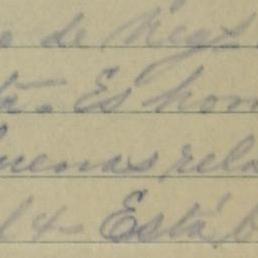 de Neys
Es hom
buenas rela
14- Está b